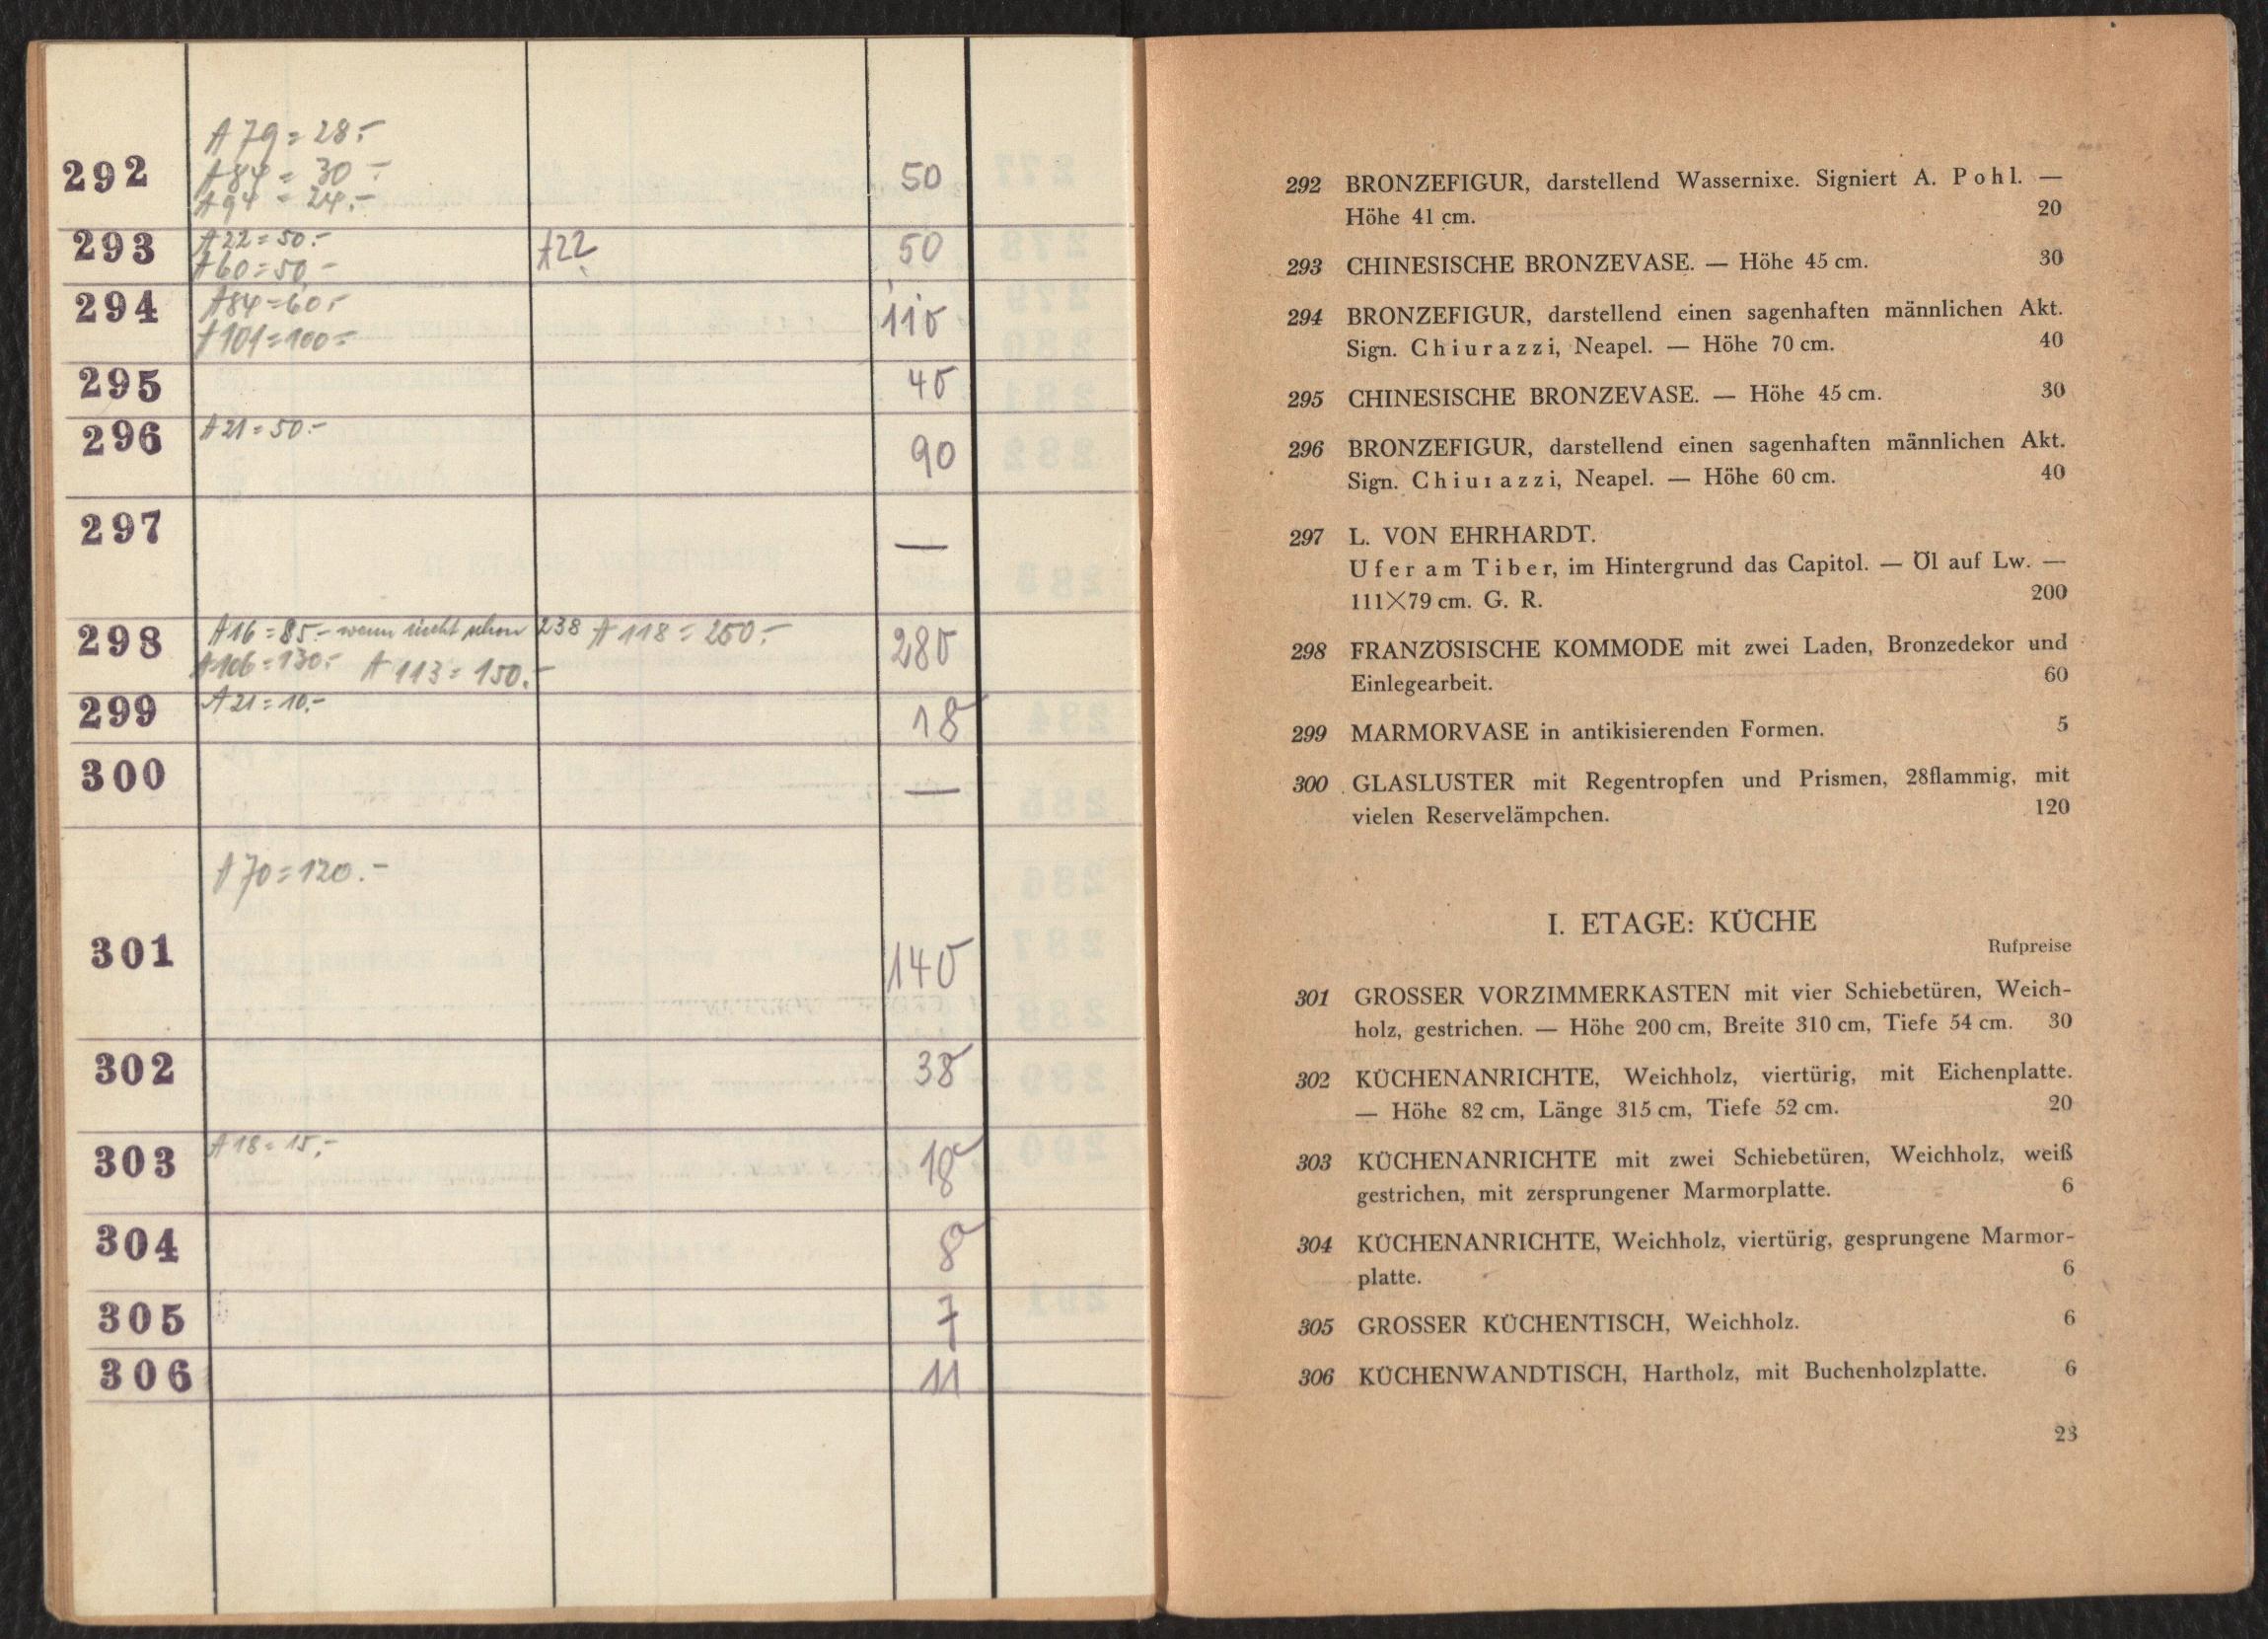 A 79 = 28.-
292 A 84 = 30.- 50
A 94 = 24.-
293 A 22 = 50.- A 22 50
A 60 = 50.-
294 A 84 = 60.- 110
A 101 = 100.-
295 40
296 A 21 = 50.- 90
297 —
298 A 16 = 85.- wenn nicht schon 238 A 118 = 250.- 280
A 106 = 130.- A 113 = 150.-
299 A 21 = 10.- 18
300 —
A 70 = 120.-
301 140
302 38
303 A 18 = 15.- 18
304 8
305 7
306 11
292 BRONZEFIGUR, darstellend Wassernixe. Signiert A. Pohl. —
Höhe 41 cm. 20
293 CHINESISCHE BRONZEVASE. — Höhe 45 cm. 30
294 BRONZEFIGUR, darstellend einen sagenhaften männlichen Akt.
Sign. Chiurazzi, Neapel. — Höhe 70 cm. 40
295 CHINESISCHE BRONZEVASE. — Höhe 45 cm. 30
296 BRONZEFIGUR, darstellend einen sagenhaften männlichen Akt.
Sign. Chiurazzi, Neapel. — Höhe 60 cm. 40
297 L. VON EHRHARDT.
Ufer am Tiber, im Hintergrund das Capitol. — Öl auf Lw. —
111×79 cm. G. R. 200
298 FRANZÖSISCHE KOMMODE mit zwei Laden, Bronzedekor und
Einlegearbeit. 60
299 MARMORVASE in antikisierenden Formen. 5
300 GLASLUSTER mit Regentropfen und Prismen, 28flammig, mit
vielen Reservelämpchen. 120
I. ETAGE: KÜCHE
Rufpreise
301 GROSSER VORZIMMERKASTEN mit vier Schiebetüren, Weich-
holz, gestrichen. — Höhe 200 cm, Breite 310 cm, Tiefe 54 cm. 30
302 KÜCHENANRICHTE, Weichholz, viertürig, mit Eichenplatte.
— Höhe 82 cm, Länge 315 cm, Tiefe 52 cm. 20
303 KÜCHENANRICHTE mit zwei Schiebetüren, Weichholz, weiß
gestrichen, mit zersprungener Marmorplatte. 6
304 KÜCHENANRICHTE, Weichholz, viertürig, gesprungene Marmor-
platte. 6
305 GROSSER KÜCHENTISCH, Weichholz. 6
306 KÜCHENWANDTISCH, Hartholz, mit Buchenholzplatte. 6
23